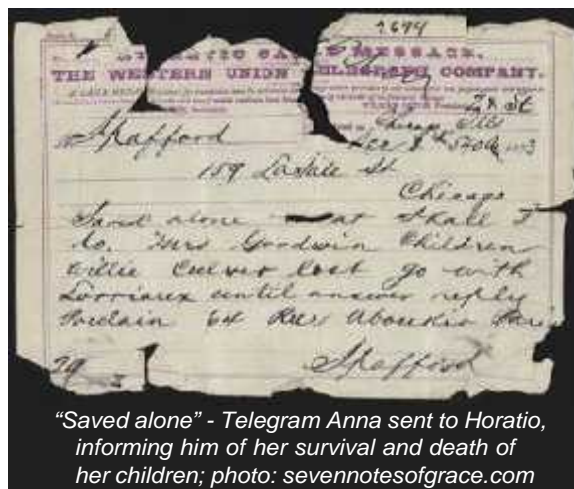 7694
CABLE MESSAGE.
THE WESTERN UNION TELEGRAPH COMPANY.
Chicago Ills
Spafford
159 LaSalle St
Chicago
Saved alone what shall I
do. Mrs Goodwin Children
Willie Culver lost go with
Lorriaux until answer reply
64 Rue Aboukir Paris
Spafford
“Saved alone” - Telegram Anna sent to Horatio,
informing him of her survival and death of
her children; photo: sevennotesofgrace.com